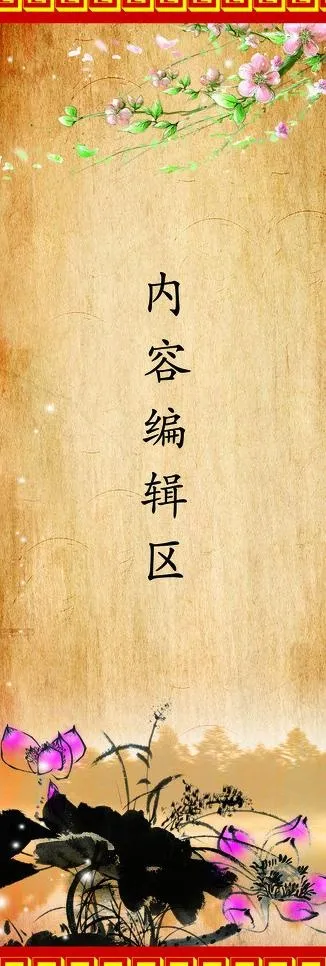 内容编辑区